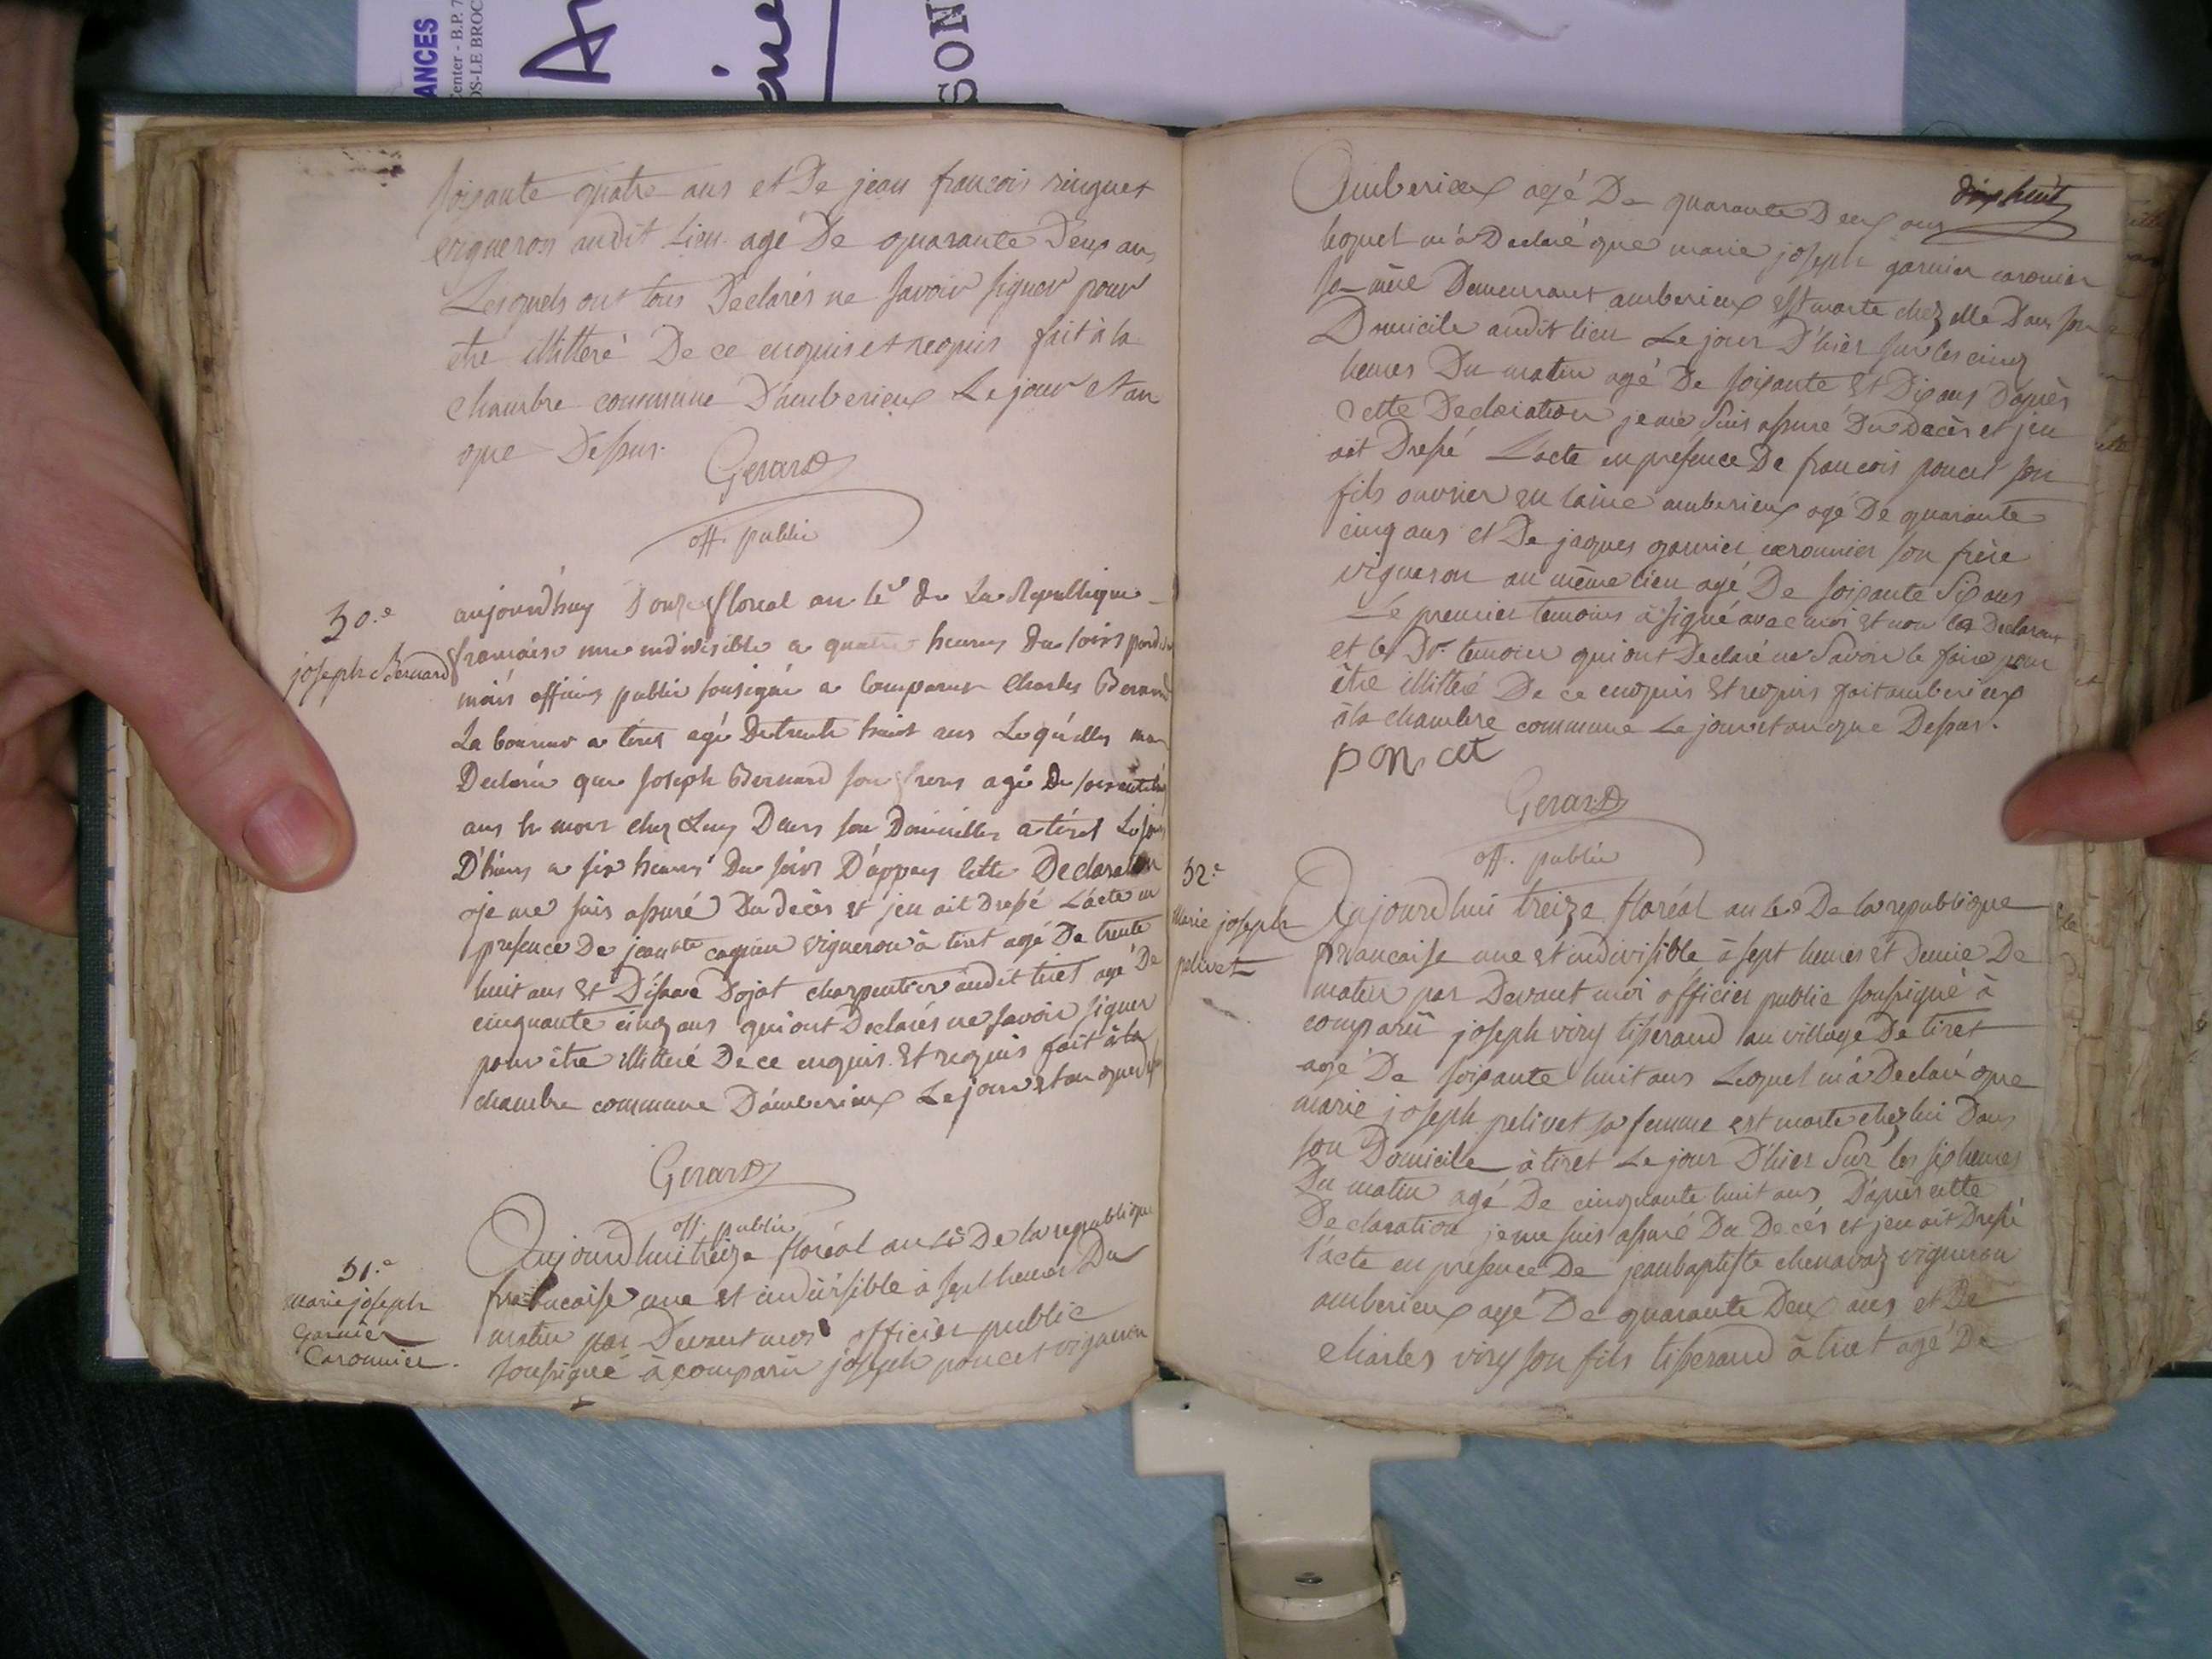 ANCES
Center - B.P. 7
OS-LE BROC
SON
soixante quatre ans et De jean francois ringuet
vigneron audit Lieu agé De quarante Deux ans
Lesquels ont tous Declarés ne savoir signer pour
etre illitteré De ce enquis et requis fait à la
chambre commune D'amberieux Le jour et an
que Dessus.
Gerard
off. public
30.e
joseph Bernard
aujourd'huy Douze floreal an 4e de La Republique
francaise une indivisible a quatre heures du soirs pard
mais officier public sousigné a Comparut Charles Bernard
La boureur a tiret agé De trente huit ans Lequelles ma
Declaré que Joseph Bernard son frere agé De
ans Es mort chez Luy Dans son Domicilles a tiret Le jour
D'hiers a six heures Du soirs D'appres cette Declaration
je me suis assuré Du décès et jen ait Dressé L'acte en
presence De jean bte vigneron à tiret agé De trente
huit ans Et Dojat charpentier audit tiret agé De
cinquante cinq ans qui ont Declarés ne savoir signer
pour être illitteré De ce enquis Et requis fait à la
chambre commune D'amberieux Le jour et an que
Gerard
off. public
31.e
marie joseph
Garnier
Caronnier.
Aujourdhui treize floréal an 4e De la republique
francaise une et indivisible à sept heures Du
matin par Devant moi officier public
soussigné à comparû joseph poncet vigneron
dix huit
Amberieux agé De quarante Deux ans
lequel m'a Declaré que marie joseph garnier caronier
sa mère Demeurant amberieux est morte chez elle Dans son
Domicile audit lieu Le jour D'hier sur les cinq
heures Du matin agé De soixante Et Dix ans D'après
cette Declaration je me suis assuré Du Decès et jen
ait Dressé L'acte en présence De francois poncet son
fils ouvrier en laine amberieux agé De quarante
cinq ans et De jaques garnier caronnier son frère
vigneron au même lieu agé De soixante Six ans
Le premier temoins à signé avec moi Et non les Declarant
et le Dr. temoin qui ont Declaré ne Savoir le faire pour
être illitteré De ce enquis Et requis fait amberieux
à la chambre commune Le jour et an que Dessus.
poncet
Gerard
off. public
32.e
Marie joseph
pelivet
Aujourdhui treize floréal an 4e De la republique
francaise une et indivisible à sept heures Et Demie De
matin par Devant moi officier public soussigné à
comparû joseph viry tisserand au village De tiret
agé De soixante huit ans Lequel m'à Declaré que
marie joseph pelivet sa femme est morte chez lui Dans
son Domicile à tiret Le jour D'hier Sur les six heures
Du matin agé De cinquante huit ans D'apres cette
Declaration je me suis assuré Du Decés et jen ait Dressé
l'acte en presence De jean baptiste chenavaz vigneron
amberieux agé De quarante Deux ans et De
charles viry son fils tisserand à tiret agé De